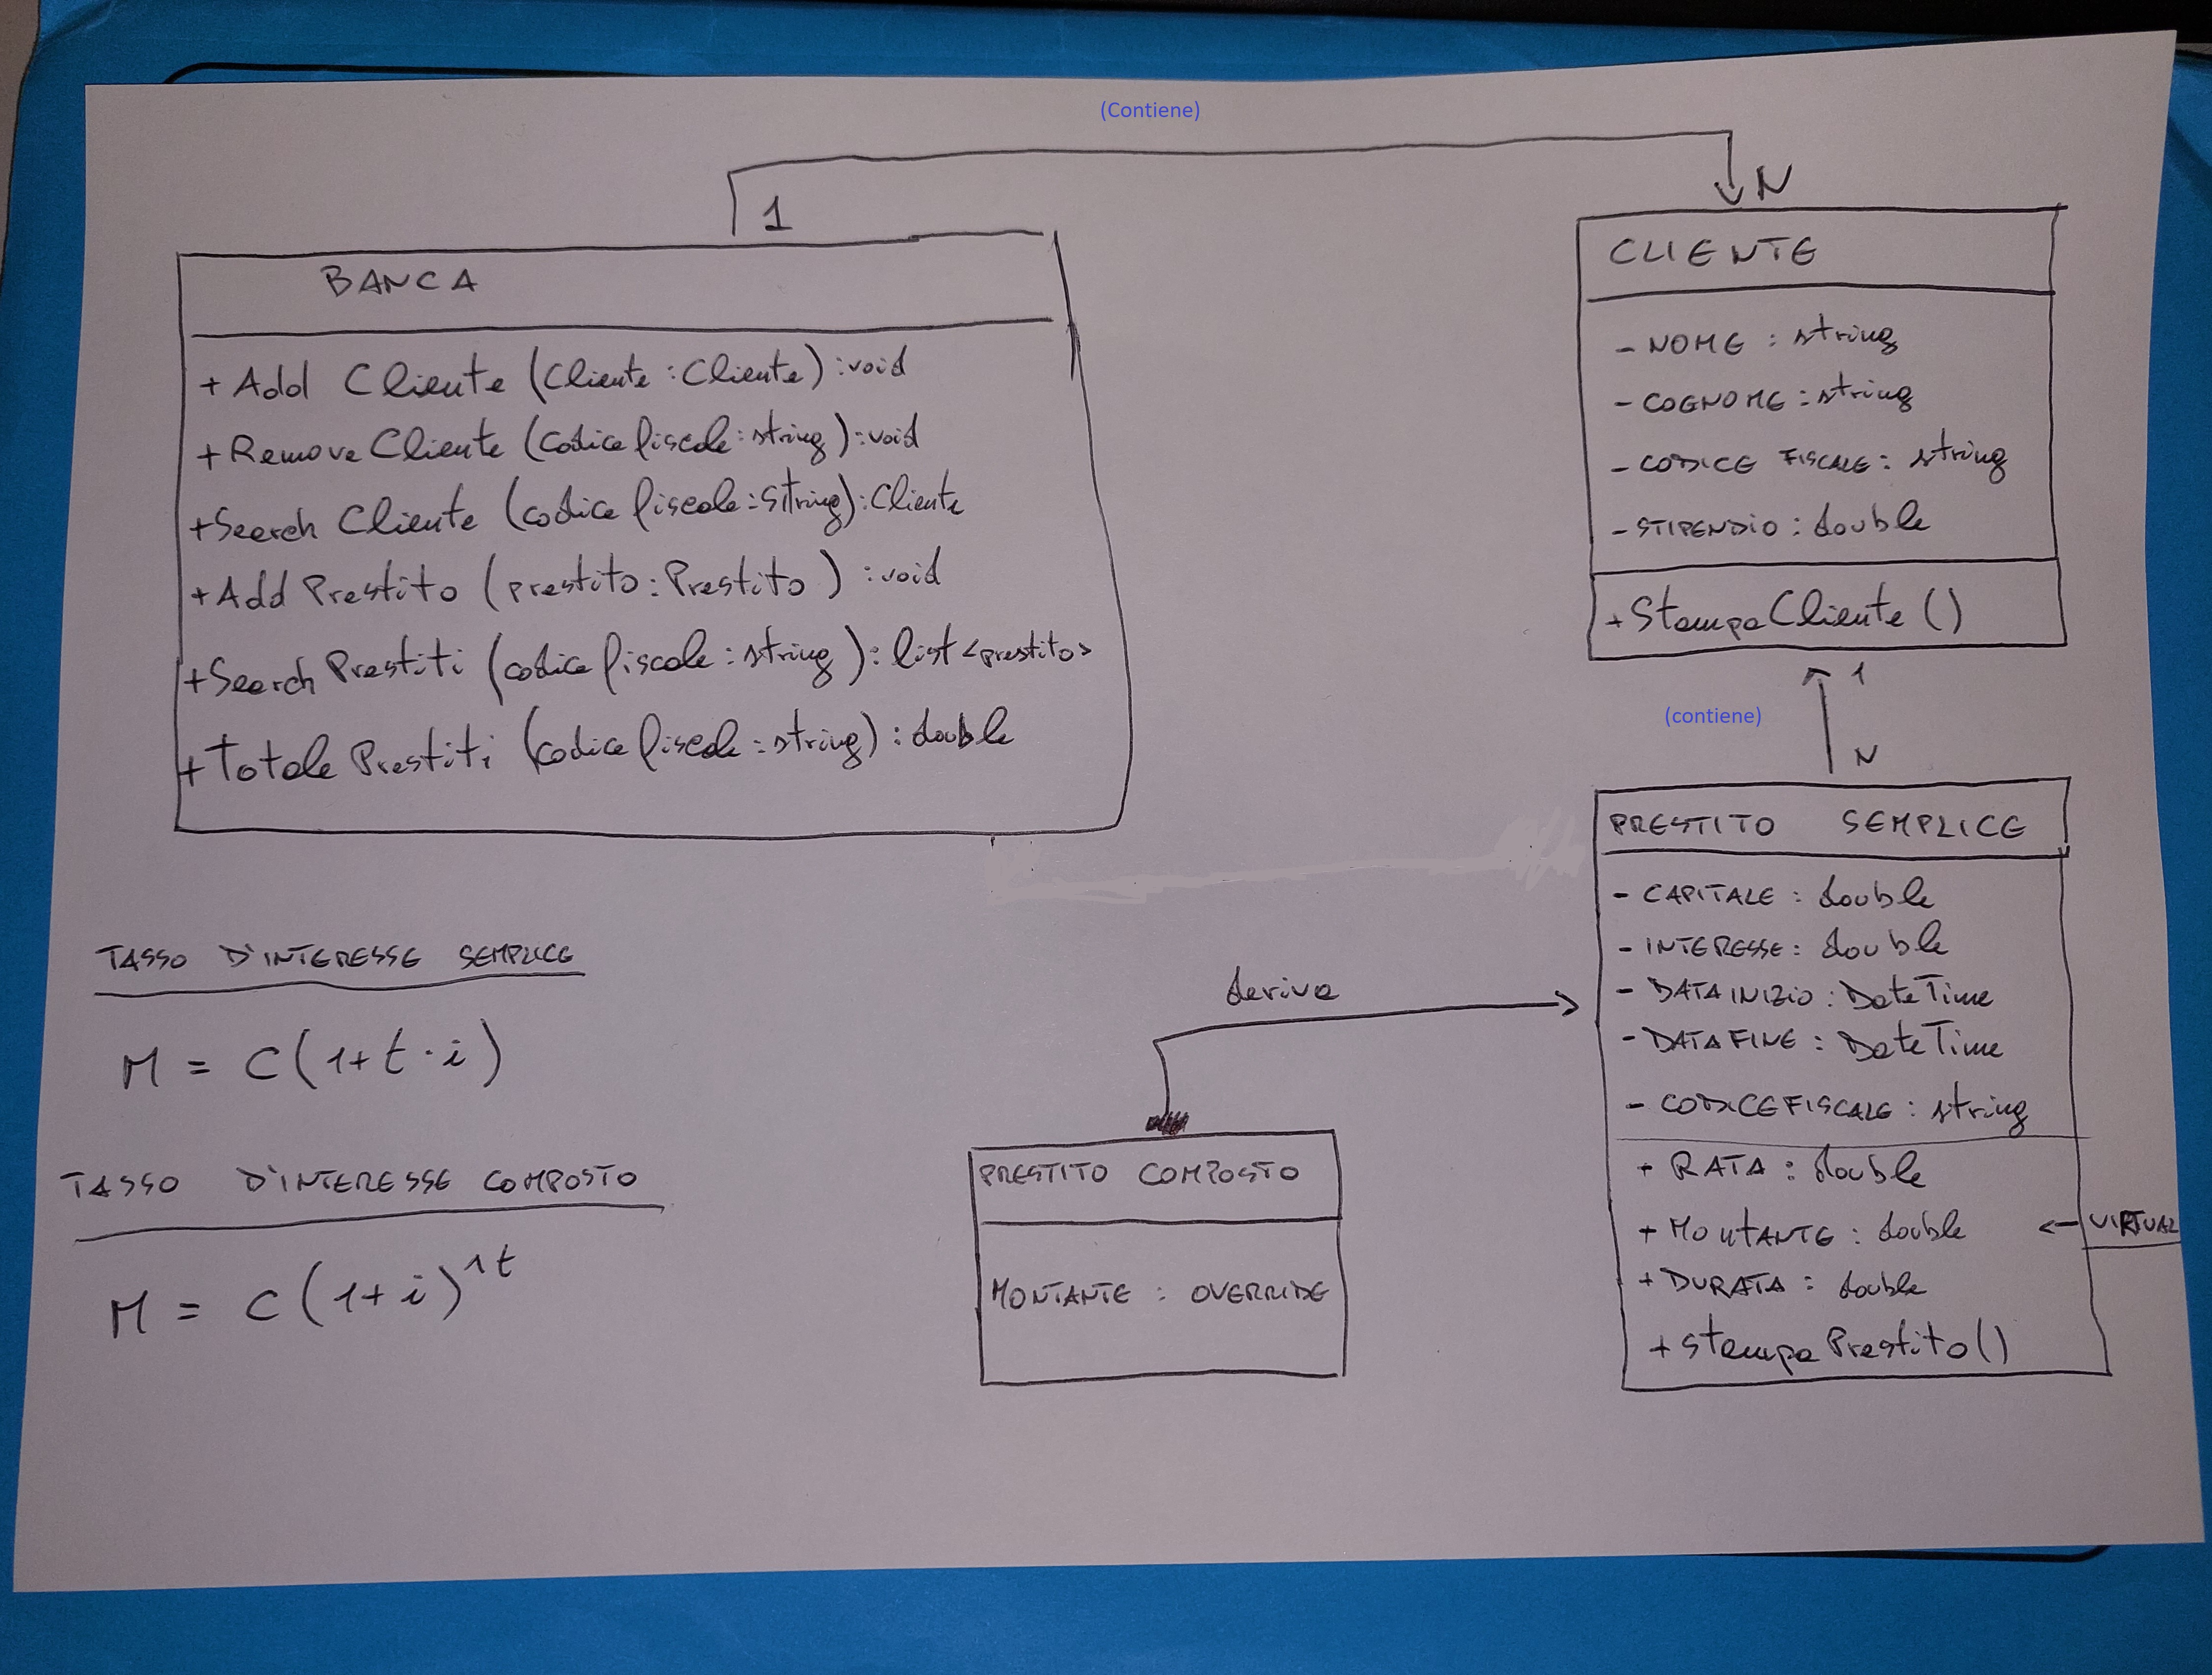 (Contiene)
1
N
BANCA
+ Add Cliente (Cliente : Cliente) : void
+ Remove Cliente (codice fiscale : string) : void
+ Search Cliente (codice fiscale : string) : Cliente
+ Add Prestito (prestito : Prestito) : void
+ Search Prestiti (codice fiscale : string) : list <prestito>
+ Totale Prestiti (codice fiscale : string) : double
CLIENTE
- NOME : string
- COGNOME : string
- CODICE FISCALE : string
- STIPENDIO : double
+ Stampa Cliente ()
1
(contiene)
N
PRESTITO SEMPLICE
- CAPITALE : double
- INTERESSE : double
- DATA INIZIO : DateTime
- DATA FINE : DateTime
- CODICE FISCALE : string
+ RATA : double
+ MONTANTE : double ← VIRTUAL
+ DURATA : double
+ Stampa Prestito ()
deriva
PRESTITO COMPOSTO
MONTANTE : OVERRIDE
TASSO D'INTERESSE SEMPLICE
M = C (1 + t · i)
TASSO D'INTERESSE COMPOSTO
M = C (1 + i)^1t